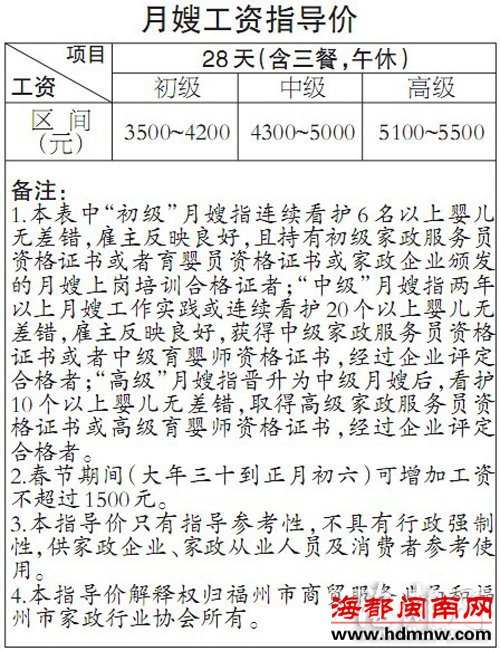 月嫂工资指导价
项目
28天(含三餐,午休)
工资
初级
中级
高级
区间
(元)
3500~4200
4300~5000
5100~5500
备注:
1.本表中“初级”月嫂指连续看护6名以上婴儿
无差错,雇主反映良好,且持有初级家政服务员
资格证书或者育婴员资格证书或家政企业颁发
的月嫂上岗培训合格证者;“中级”月嫂指两年
以上月嫂工作实践或连续看护20个以上婴儿无
差错,雇主反映良好,获得中级家政服务员资格
证书或者中级育婴师资格证书,经过企业评定
合格者;“高级”月嫂指晋升为中级月嫂后,看护
10个以上婴儿无差错,取得高级家政服务员资
格证书或高级育婴师资格证书,经过企业评定
合格者。
2.春节期间(大年三十到正月初六)可增加工资
不超过1500元。
3.本指导价只有指导参考性,不具有行政强制
性,供家政企业、家政从业人员及消费者参考使
用。
4.本指导价解释权归福州市商贸服务业局和福
州市家政行业协会所有。
海都闽南网
www.hdmnw.com